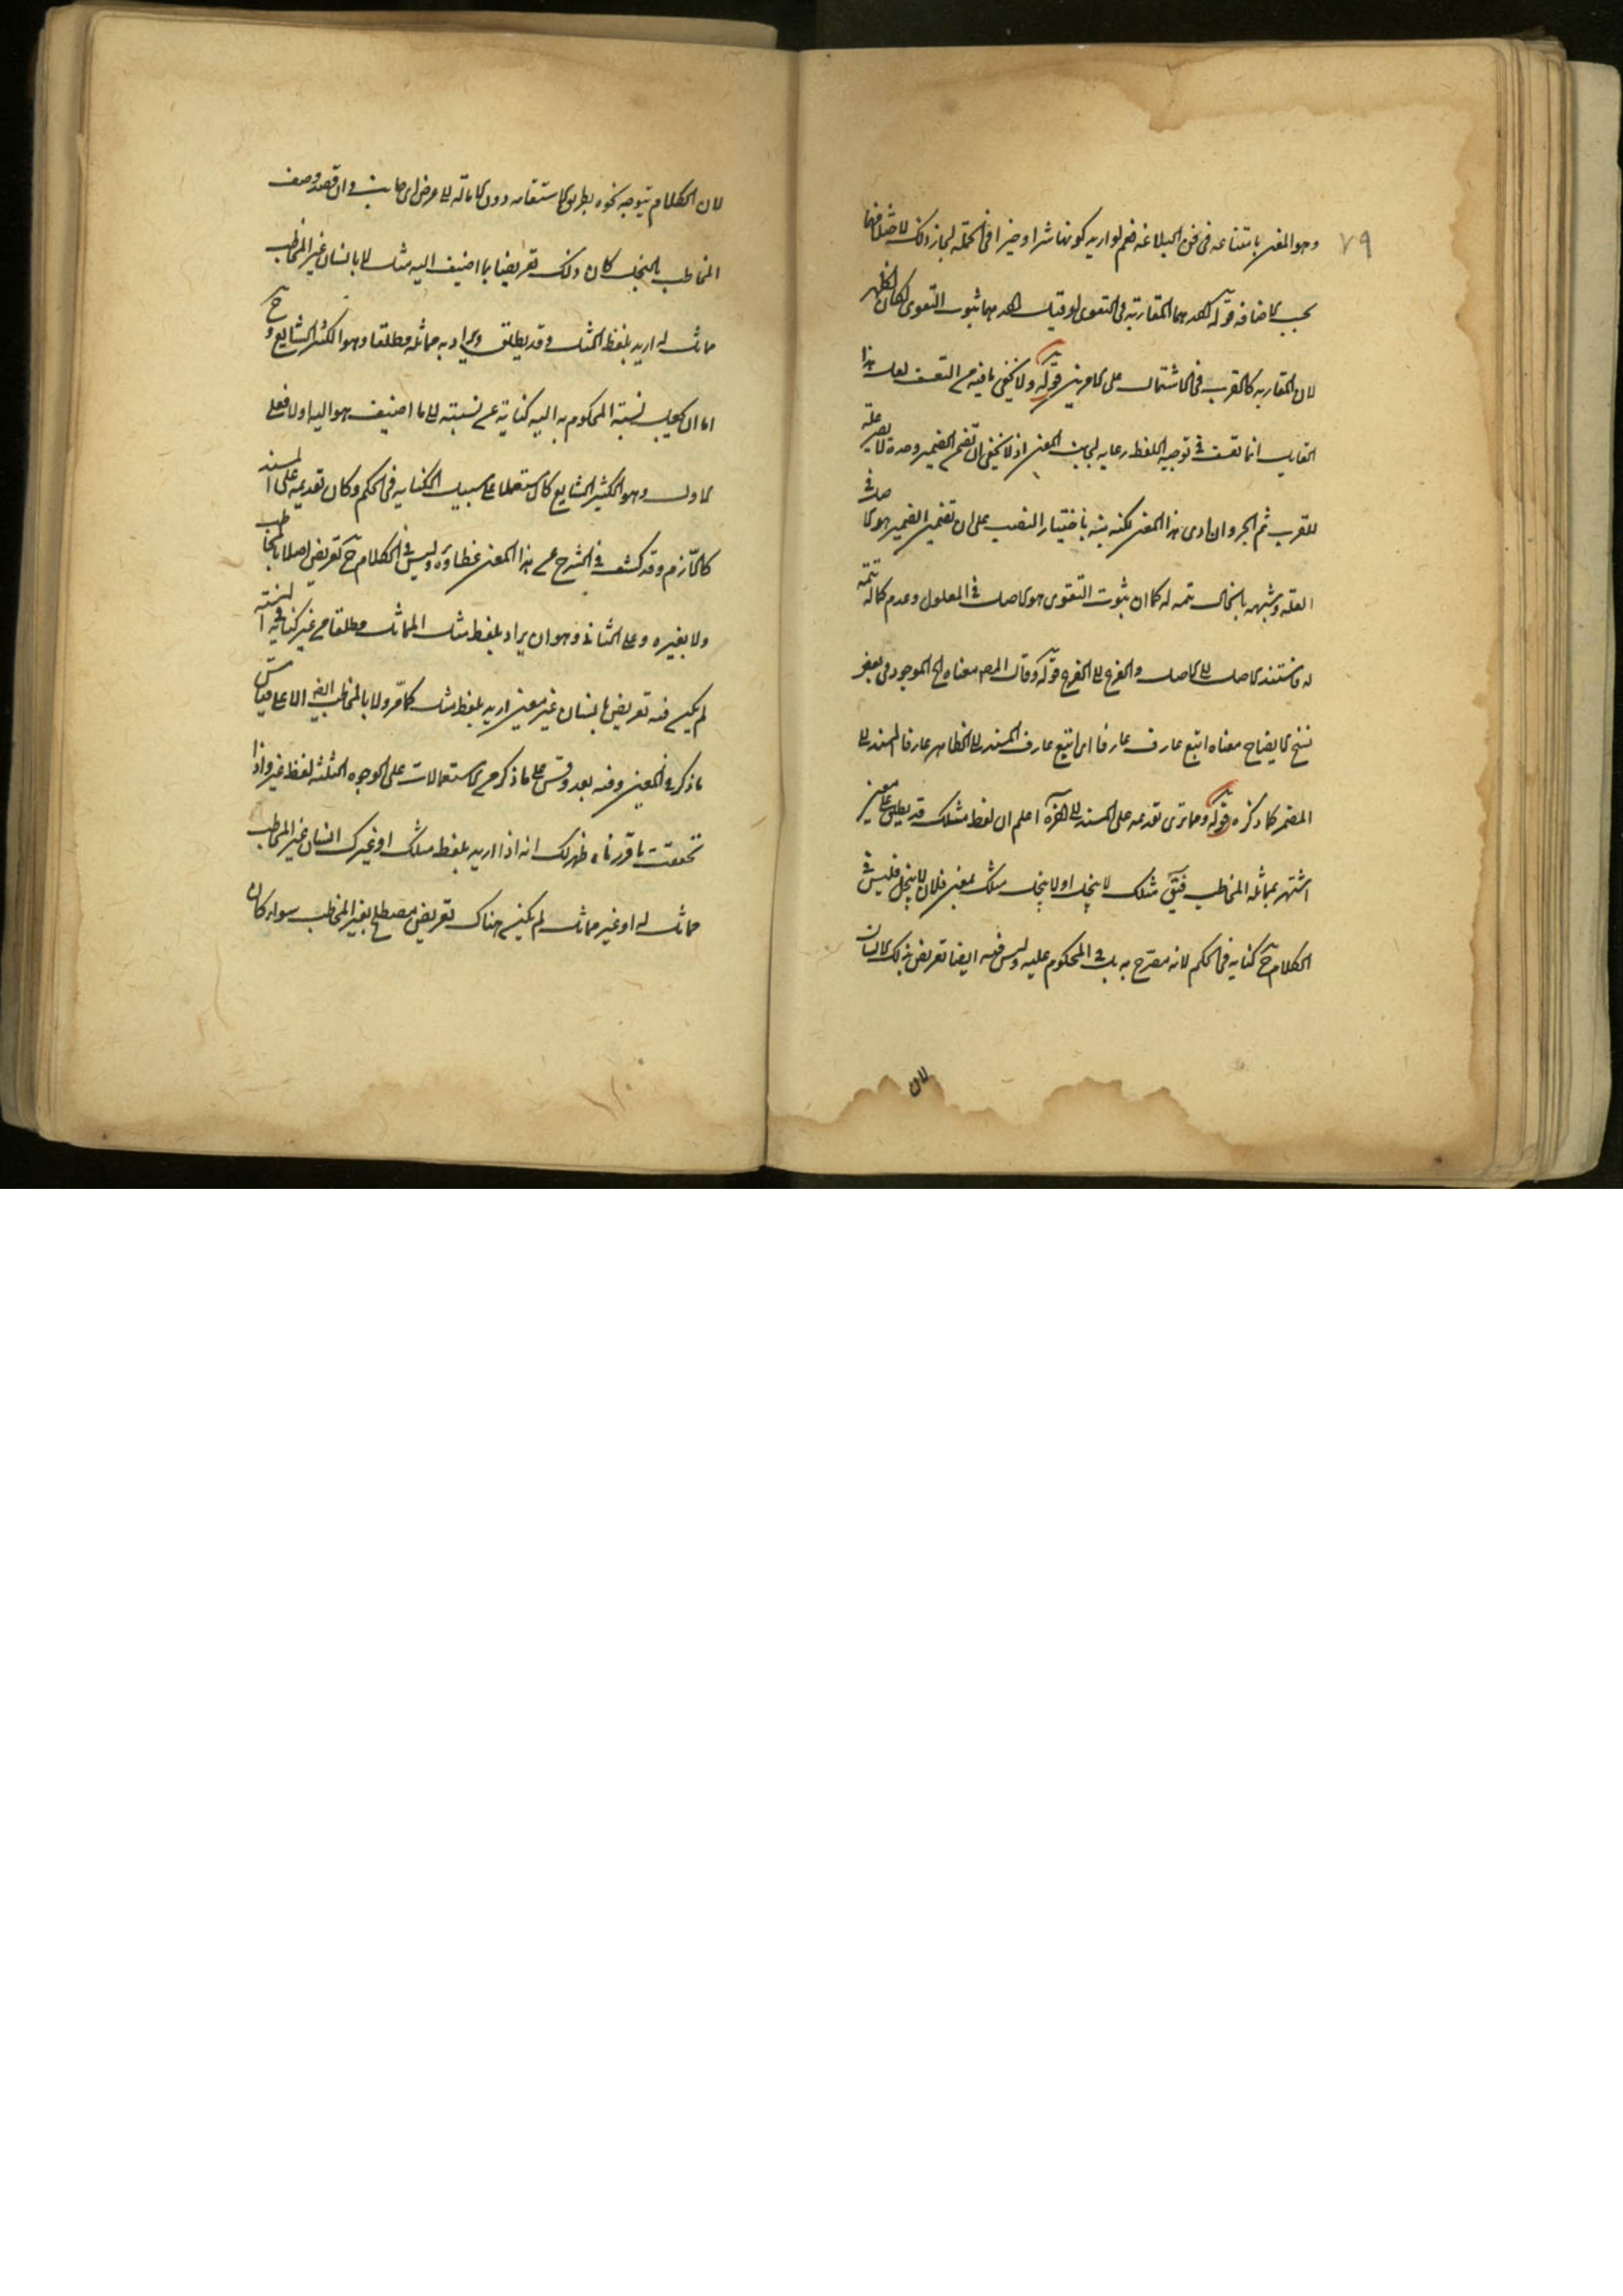 ٧٩
وهو المعنى بامتناعه فى فن البلاغة نعم لو اريد كونها شرا وخيرا فى الجملة لجاز ذلك
بحسب الاضافة قوله احدهما المقاربة فى التقوى لو قيل احدهما ثبوت التقوى لكان اظهر
لان المقاربة كالقرب فى الاشتمال على الامرين قوله ولا يخفى ما فيه من التعسف لعل هذا
القايل انما تعسف فى توجيه اللفظ رعاية لجانب المعنى اذ لا يخفى ان تضمن الضمير وحده لا يصير علة
للقرب ثم الجر وان ادى هذا المعنى لكنه نبه باختيار النصب على ان تضمن الضمير هو الاصل فى
العلة وشبهه بالخالى تتمة له كما ان ثبوت التقوى هو الاصل فى المعلول وعدم كماله تتمة
له فاستند الاصل الى الاصل والفرع الى الفرع قوله وقال المص معناه الخ الموجود فى بعض
نسخ الايضاح معناه اتبع عارف عارفا اى اتبع عارف المسند الى الظاهر عارفا المسند الى
المضمر كما ذكره قوله ومما ترى تقديمه على المسند الى آخره اعلم ان لفظ مثلك قد يطلق على معين
اشتهر بمماثلة المخاطب فيق مثلك لا يبخل او لا يبخل مثلك بمعنى فلان لا يبخل فليس فى
الكلام ح كناية فى الحكم لانه مصرح به بل فى المحكوم عليه وليس فيه ايضا تعريض بذلك الانسان
لان
لان الكلام توجه نحوه بطريق الاستقامة دون الامالة الى عرض اى جانب وان قصد وصف
المخاطب بالبخل كان ذلك تعريضا بما اضيف اليه مثل لا بانسان غير المخاطب
مماثل له اريد بلفظ المثل وقد يطلق ويراد به مماثله مطلقا وهو الكثير الشايع وح
اما ان يجعل نسبة المحكوم به اليه كناية عن نسبته الى ما اضيف هو اليه اولا فعلى
الاول وهو الكثير الشايع كان مستعملا على سبيل الكناية فى الحكم وكان تقديمه على المسند
كاللازم وقد كشف فى الشرح عن هذا المعنى غطاؤه وليس فى الكلام ح تعريض اصلا بالمخاطب
ولا بغيره وعلى الثانى وهو ان يراد بلفظ مثل المماثل مطلقا من غير كناية فى النسبة
لم يكن فيه تعريض بانسان غير معين اريد بلفظ مثل كما مر ولا بالمخاطب ايضا الا على قياس
ما ذكر فى المعين وفيه بعد وقس على ما ذكر من الاستعمالات على الوجوه الثلثة لفظ غير واذا
تحققت ما قررناه ظهر لك انه اذا اريد بلفظ مثلك او غيرك انسان غير المخاطب
مماثل له او غير مماثل لم يكن هناك تعريض مصطلح بغير المخاطب سواء كان